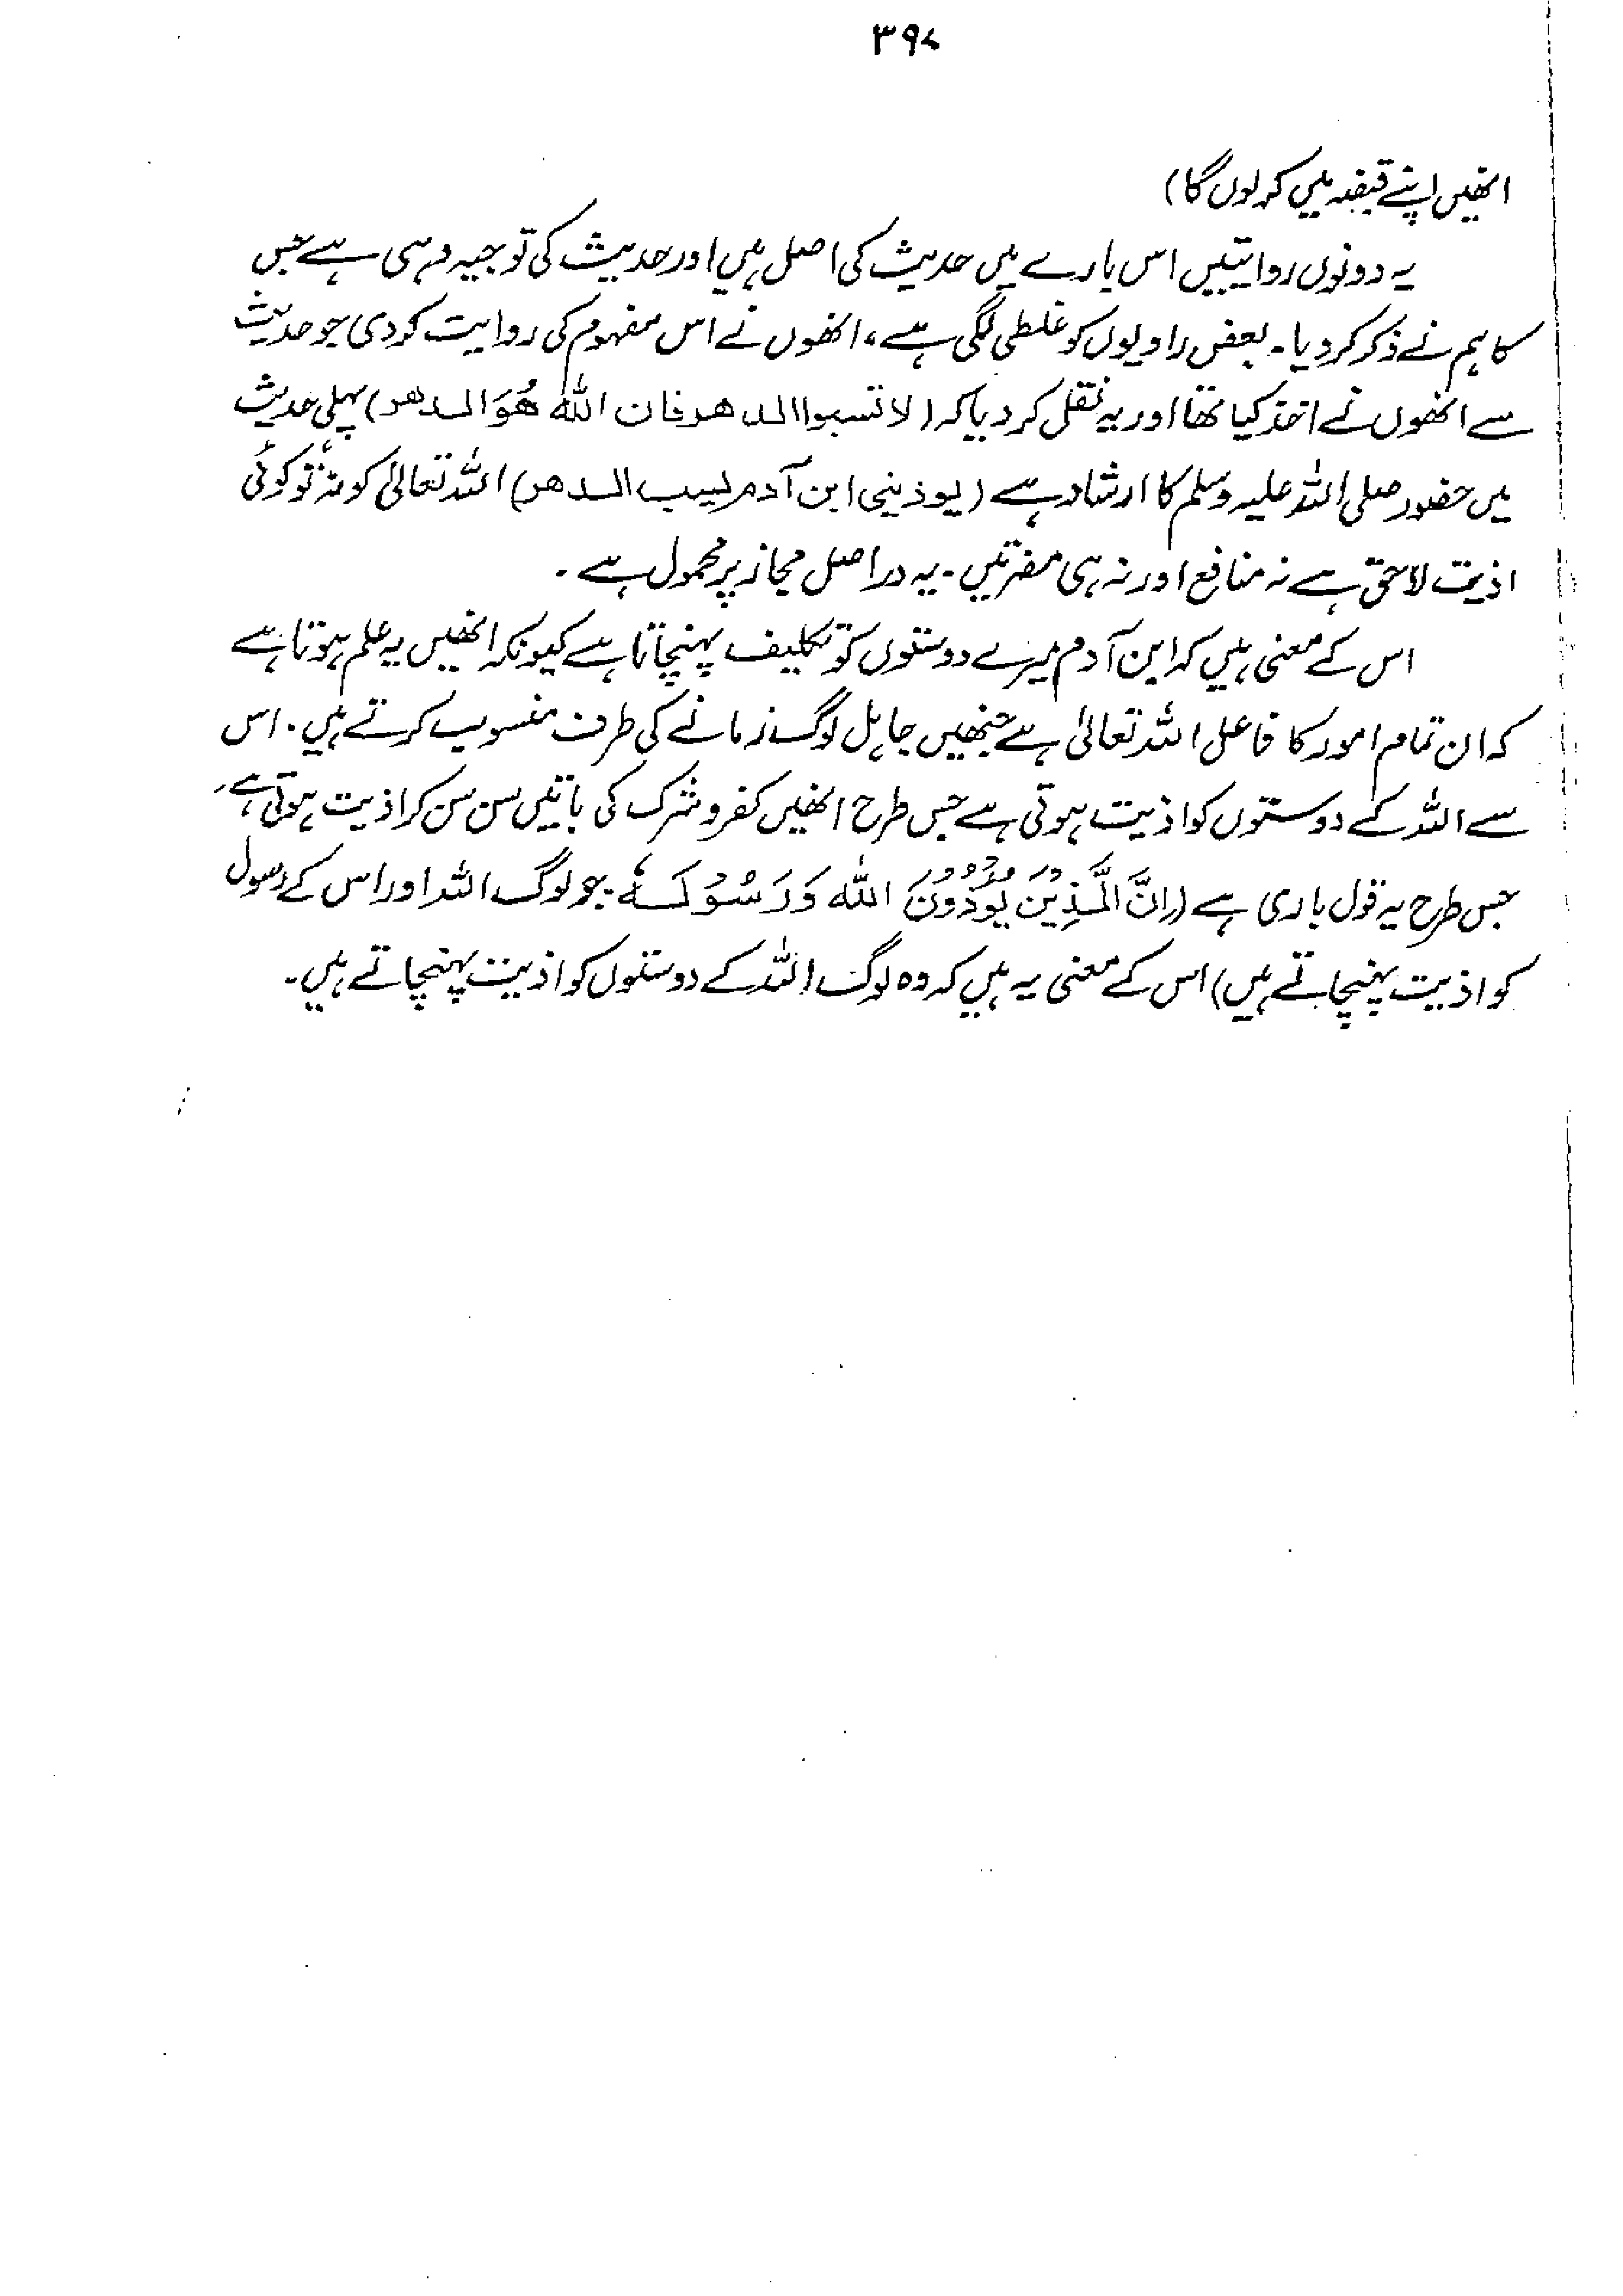 ۳۹۷
انھیں اپنے قبضہ میں کر لوں گا)
یہ دونوں روایتیں اس بارے میں حدیث کی اصل ہیں اور حدیث کی توجیہ وہی ہے جس
کا ہم نے ذکر کر دیا۔ بعض راویوں کو غلطی لگی ہے، انھوں نے اس مفہوم کی روایت کردی جو حدیث
سے انھوں نے اخذ کیا تھا اور یہ نقل کر دیا کہ (لا تسبوا الدهر فان اللہ هُوَ الدهر) پہلی حدیث
میں حضور صلی اللہ علیہ وسلم کا ارشاد ہے (یوذینی ابن آدم یسب الدهر) اللہ تعالیٰ کو نہ تو کوئی
اذیت لاحق ہے نہ منافع اور نہ ہی مضرتیں۔ یہ دراصل مجاز پر محمول ہے۔
اس کے معنی ہیں کہ ابن آدم میرے دوستوں کو تکلیف پہنچاتا ہے کیونکہ انھیں یہ علم ہوتا ہے
کہ ان تمام امور کا فاعل اللہ تعالیٰ ہے جنھیں جاہل لوگ زمانے کی طرف منسوب کرتے ہیں۔ اس
سے اللہ کے دوستوں کو اذیت ہوتی ہے جس طرح انھیں کفر و شرک کی باتیں سن سن کر اذیت ہوتی ہے،
جس طرح یہ قول باری ہے (اِنَّ الَّذِیْنَ یُؤْذُوْنَ اللّٰہَ وَرَسُوْلَهٗ۔ جو لوگ اللہ اور اس کے رسول
کو اذیت پہنچاتے ہیں) اس کے معنی یہ ہیں کہ وہ لوگ اللہ کے دوستوں کو اذیت پہنچاتے ہیں۔